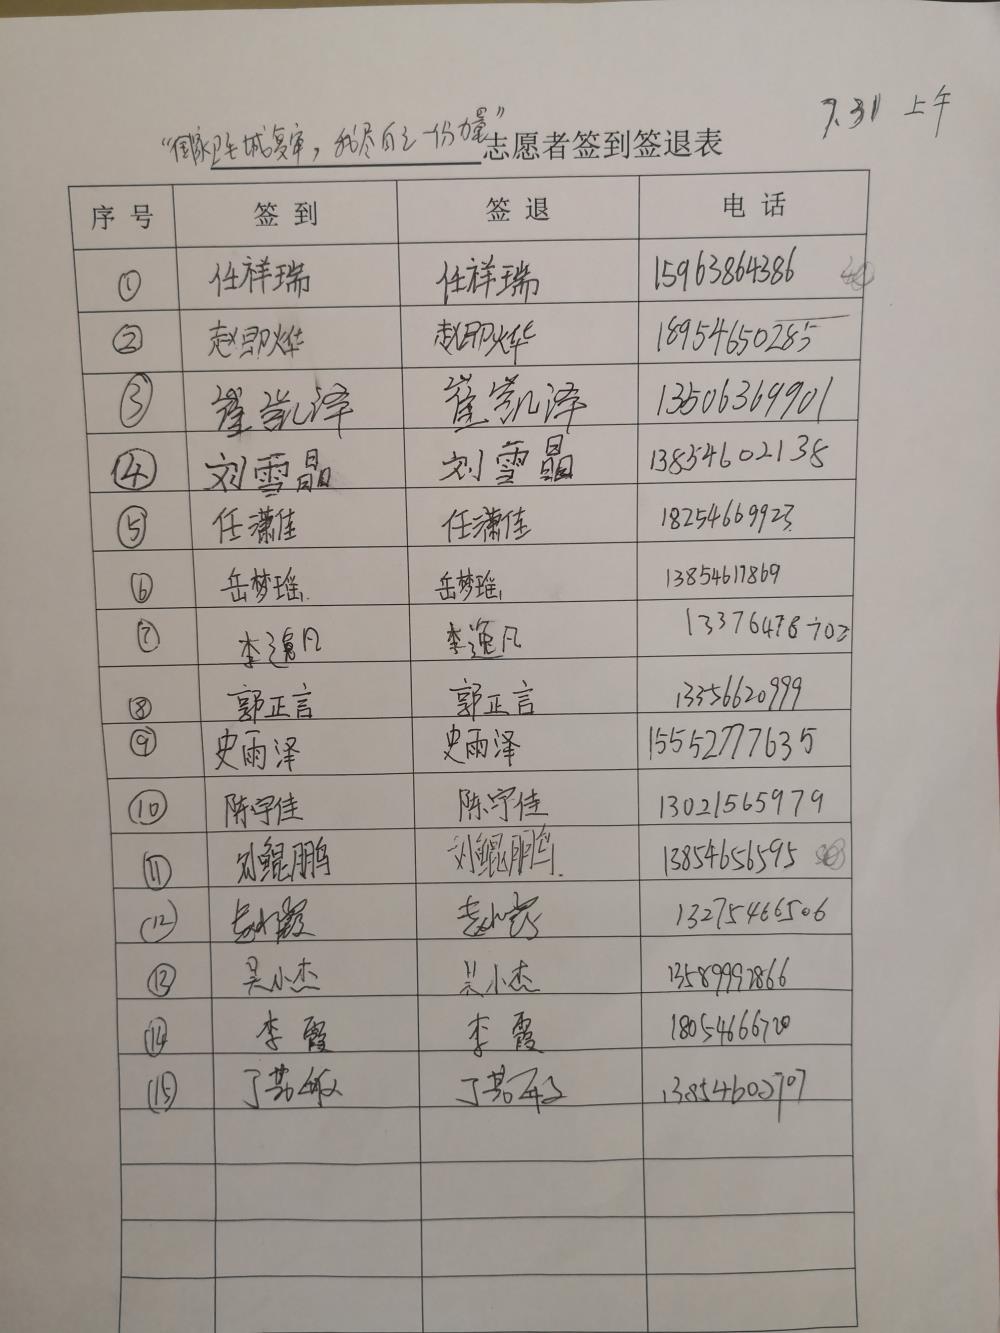 7.31 上午
"国家卫生城复审，我尽自己一份力量"志愿者签到签退表
序号 签到 签退 电话
① 任祥瑞 任祥瑞 15963864386
② 赵即烨 赵即烨 18954650285
③ 崔凯泽 崔凯泽 13506369901
④ 刘雪晶 刘雪晶 13854602138
⑤ 任潇佳 任潇佳 18254669923
⑥ 岳梦瑶 岳梦瑶 13854617869
⑦ 李逸凡 李逸凡 13376478702
⑧ 郭正言 郭正言 13356620999
⑨ 史雨泽 史雨泽 15552777635
⑩ 陈宇佳 陈宇佳 13021565979
⑪ 刘鲲鹏 刘鲲鹏 13854656595
⑫ 13275466506
⑬ 吴小杰 吴小杰 13589992866
⑭ 李霞 李霞 18054666720
⑮ 丁英敏 丁英敏 13854602707